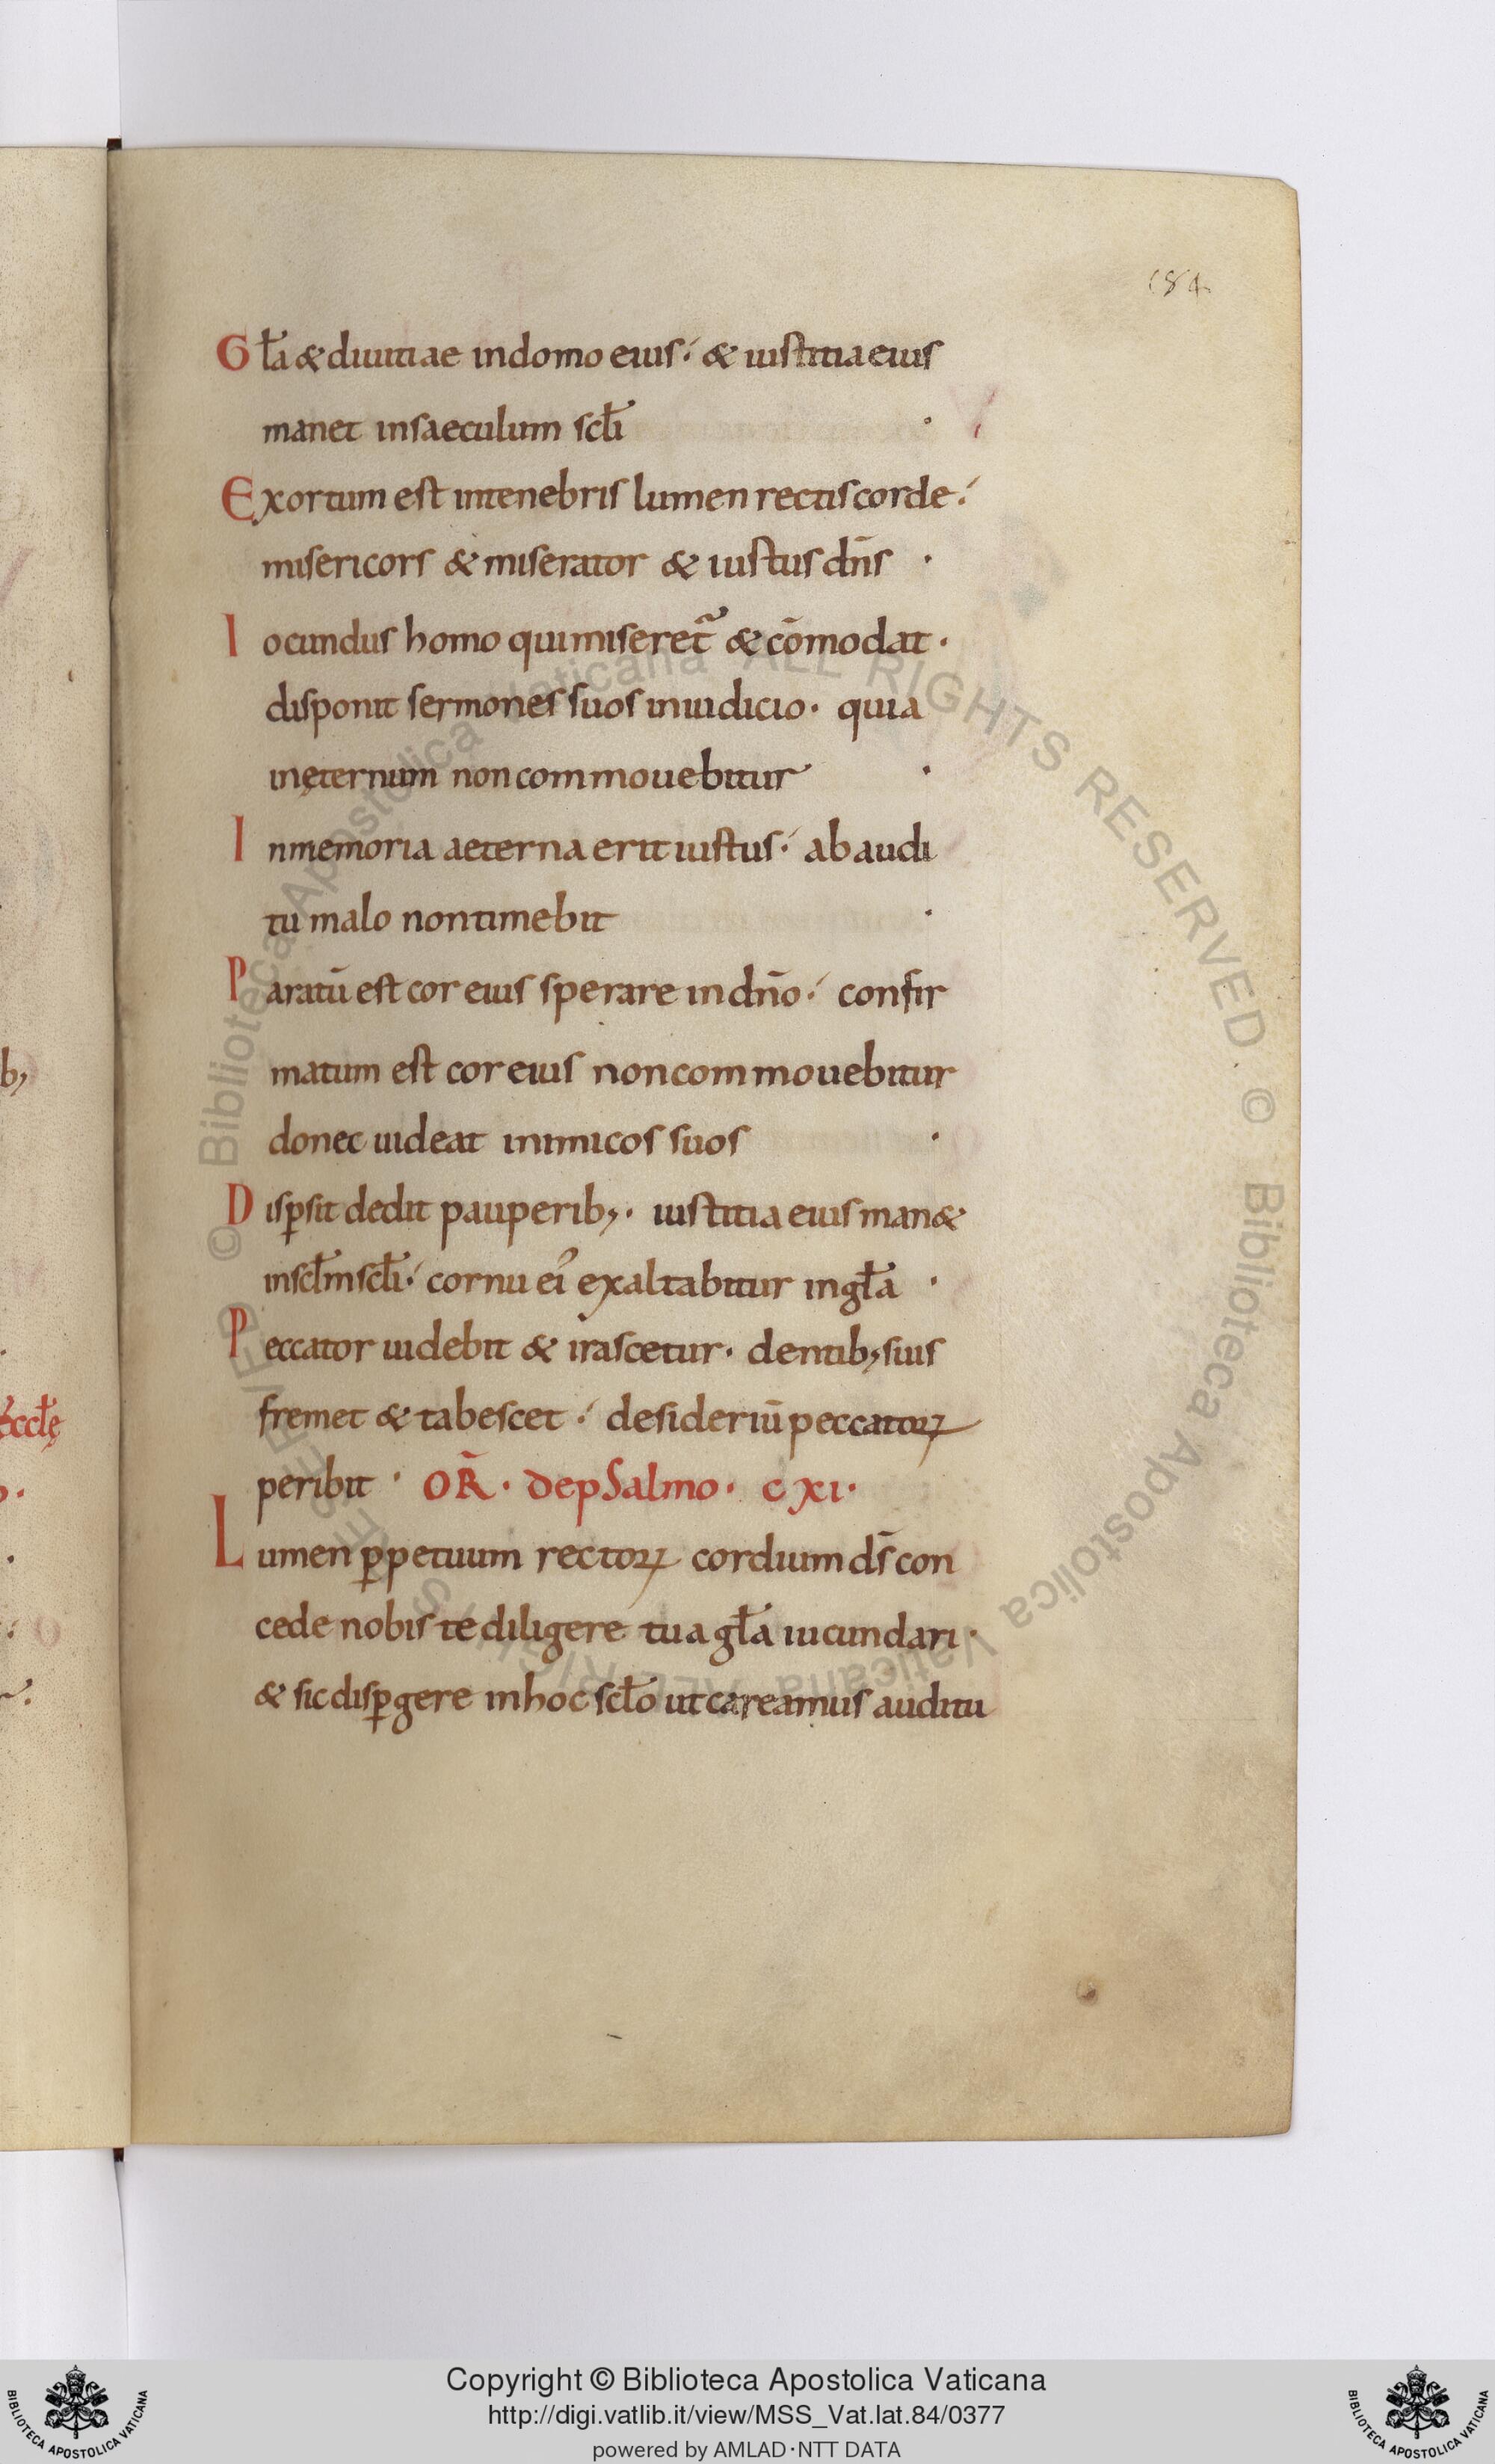 184
Gl̄a & diuitiae in domo eius·́ & iustitia eius
manet in saeculum scl̄i ·
Exortum est in tenebris lumen rectis corde·́
misericors & miserator & iustus dn̄s ·
Iocundus homo qui miseret᷑ & cōmodat·
disponit sermones suos in iudicio· quia
in ęternum non commouebitur ·
In memoria aeterna erit iustus·́ ab audi
tu malo non timebit ·
Paratū est cor eius sperare in dn̄o·́ confir
matum est cor eius non commouebitur
donec uideat inimicos suos ·
Disꝑsit dedit pauperib;· iustitia eius man&
in scl̄m scl̄i·́ cornu ei᾽ exaltabitur in gl̄a ·
Peccator uidebit & irascetur· dentib; suis
fremet & tabescet·́ desideriū peccatoꝝ
peribit · OR̄· de pSalmo· cxi·
Lumen ꝑpetuum rectoꝝ cordium ds̄ con
cede nobis te diligere tua gl̄a iucundari·
& sic disꝑgere in hoc scl̄o ut careamus auditu
b;
ccl̄ę
© Biblioteca Apostolica Vaticana ALL RIGHTS RESERVED. © Biblioteca Apostolica Vaticana ALL RIGHTS RESERVED
BIBLIOTECA APOSTOLICA VATICANA
Copyright © Biblioteca Apostolica Vaticana
http://digi.vatlib.it/view/MSS_Vat.lat.84/0377
powered by AMLAD·NTT DATA
BIBLIOTECA APOSTOLICA VATICANA